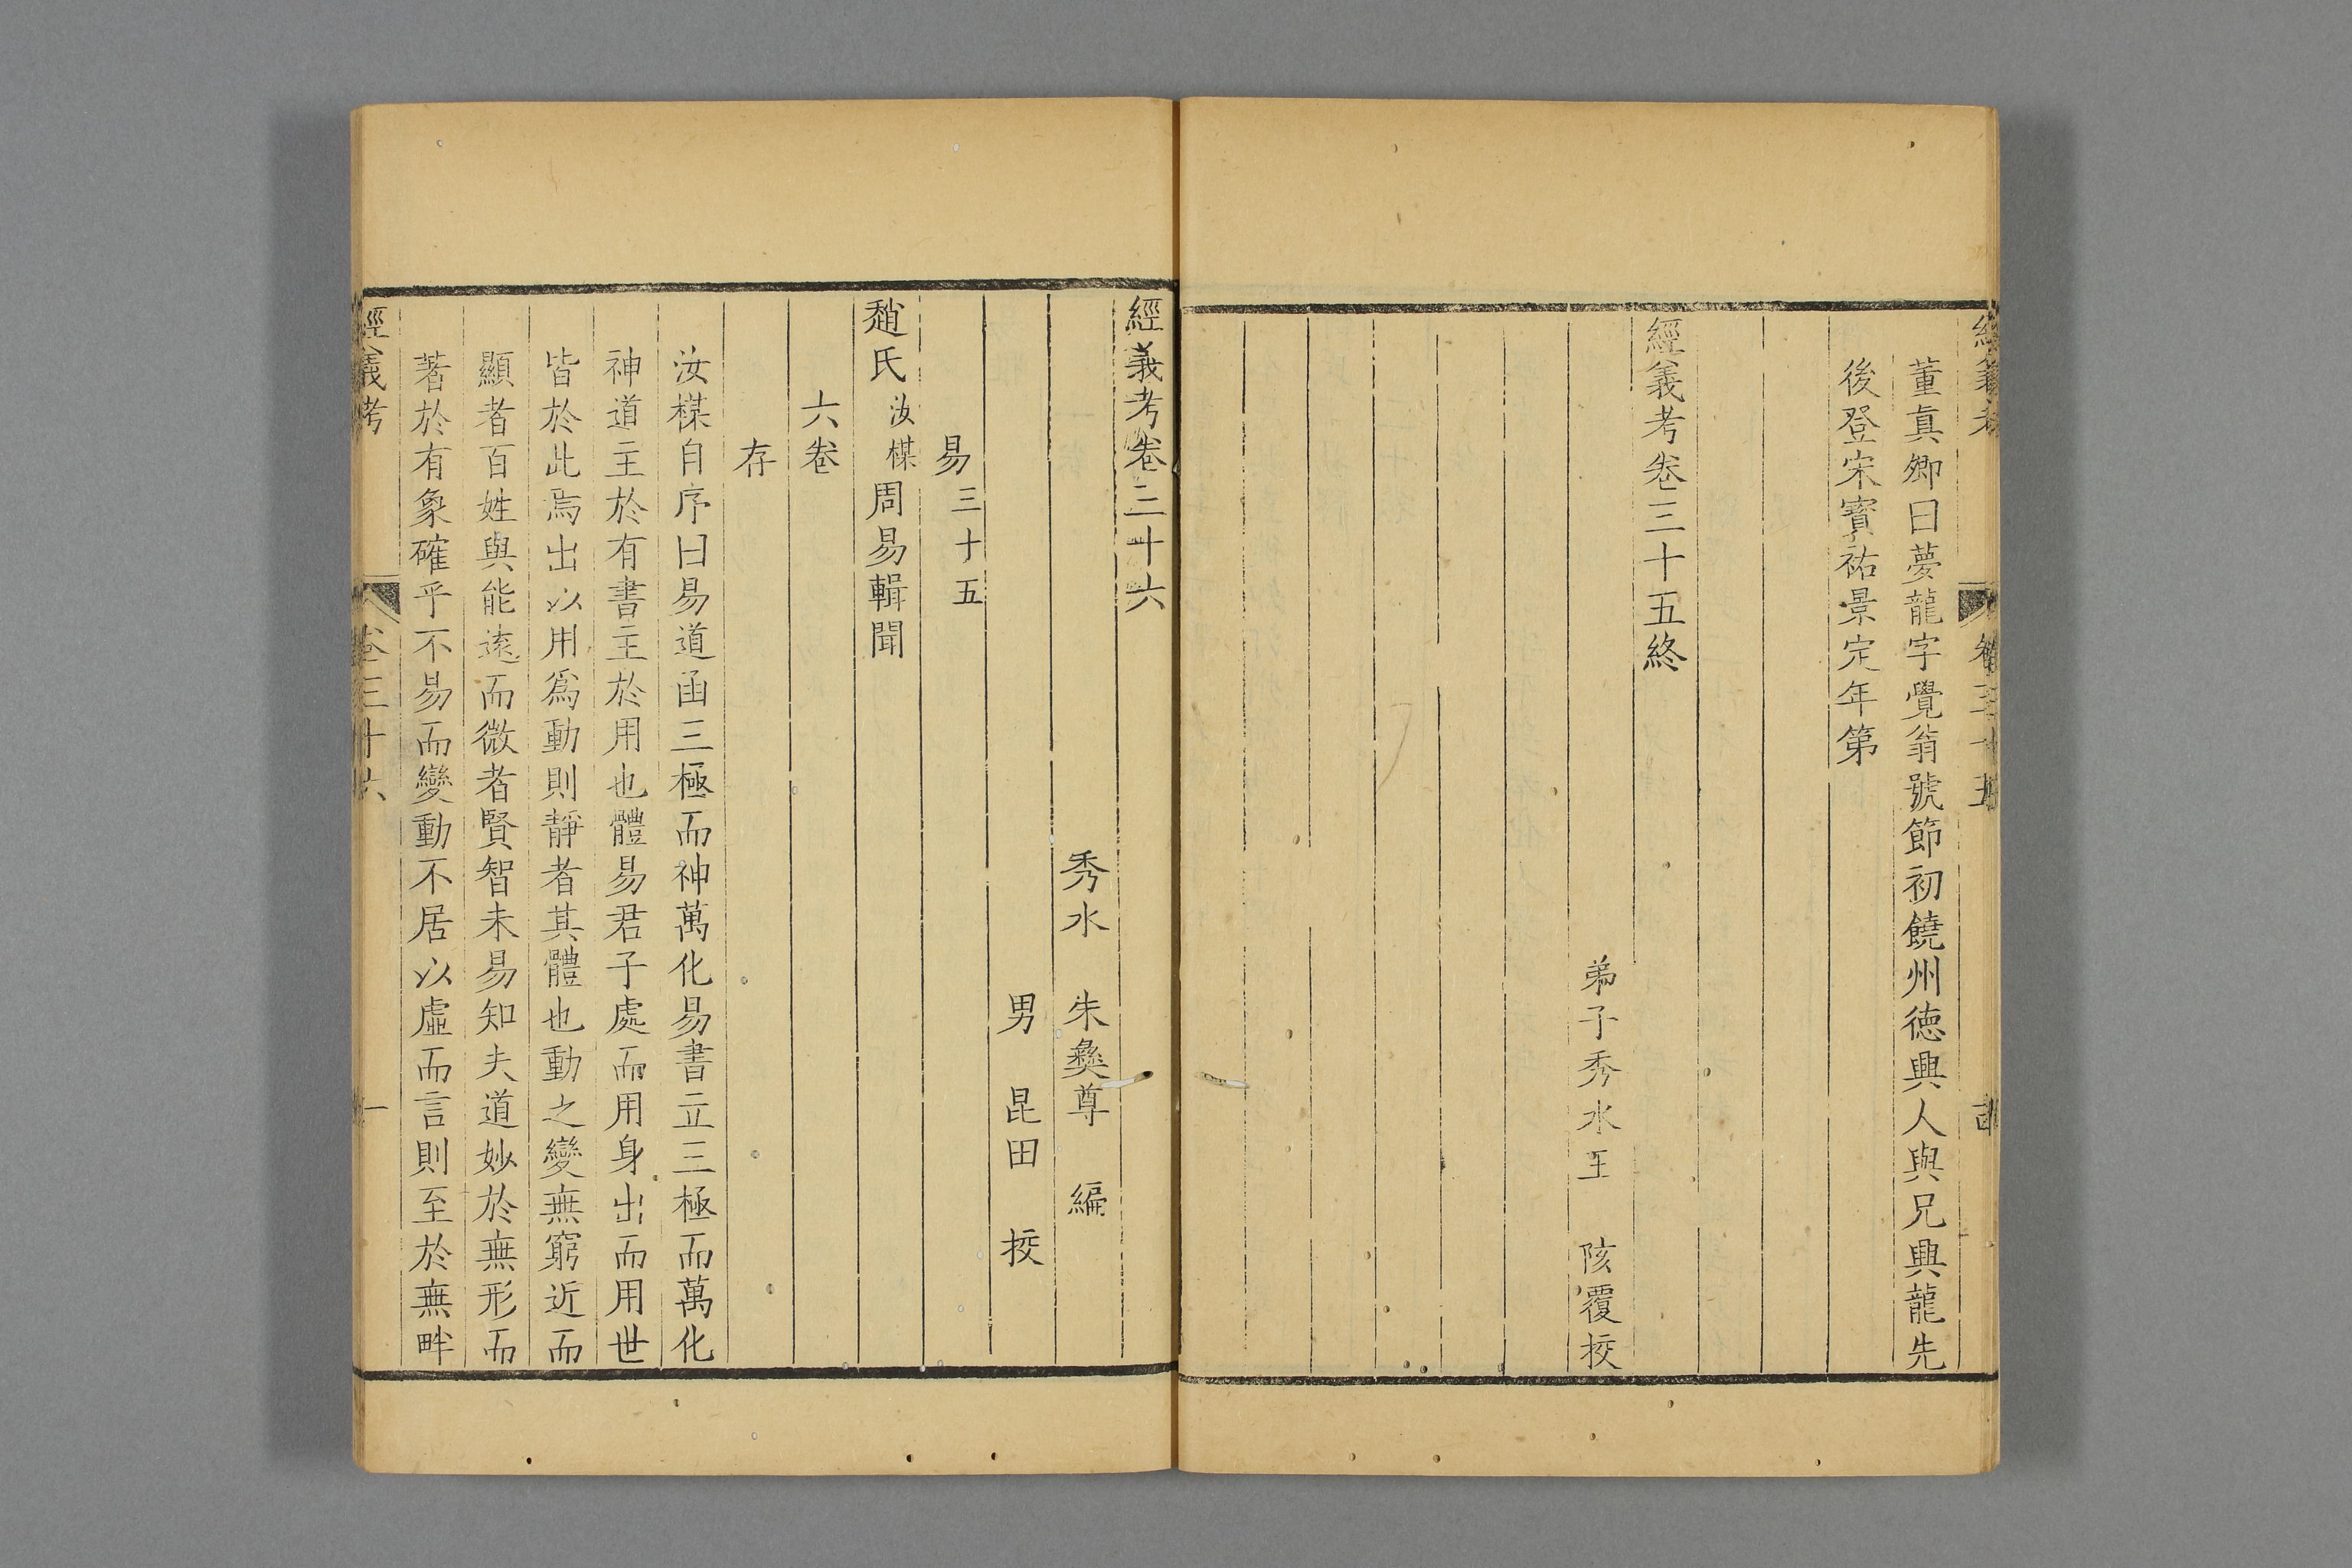 董真卿曰夢龍字覺翁號節初饒州德興人與兄興龍先
後登宋寶祐景定年第
經義考卷三十五終
弟子秀水王　陔覆挍
經義考卷三十六
秀水　朱彝尊　編
男　昆田　挍
易三十五
趙氏汝楳周易輯聞
六卷
存
汝楳自序曰易道函三極而神萬化易書立三極而萬化
神道主於有書主於用也體易君子處而用身出而用世
皆於此焉出以用爲動則靜者其體也動之變無窮近而
顯者百姓與能遠而微者賢智未易知夫道妙於無形而
著於有象確乎不易而變動不居以虛而言則至於無畔
經義考　卷三十六　一